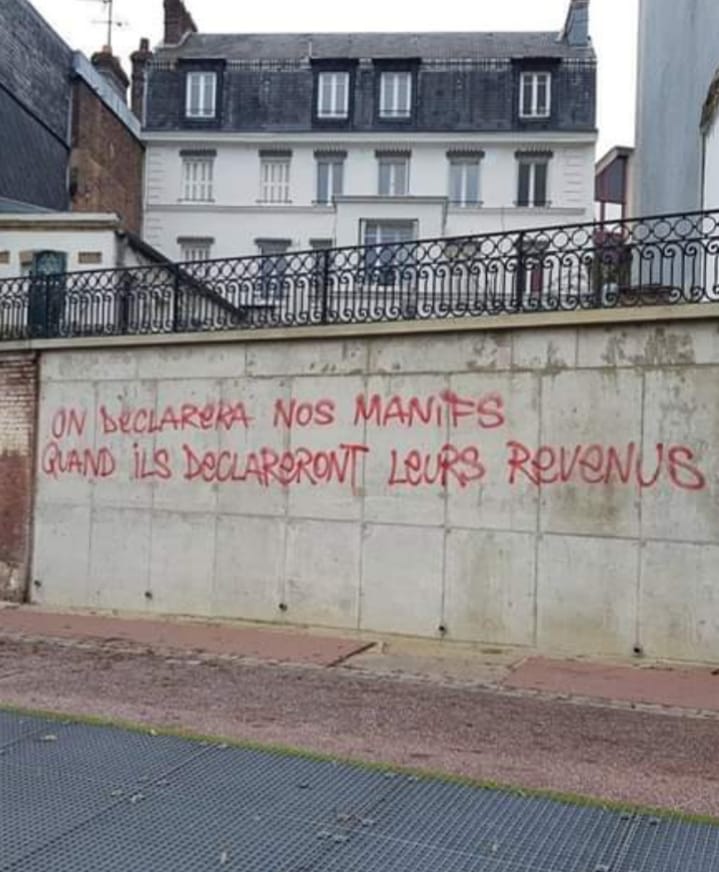 ON DECLARERA NOS MANIFS
QUAND ILS DECLARERONT LEURS REVENUS